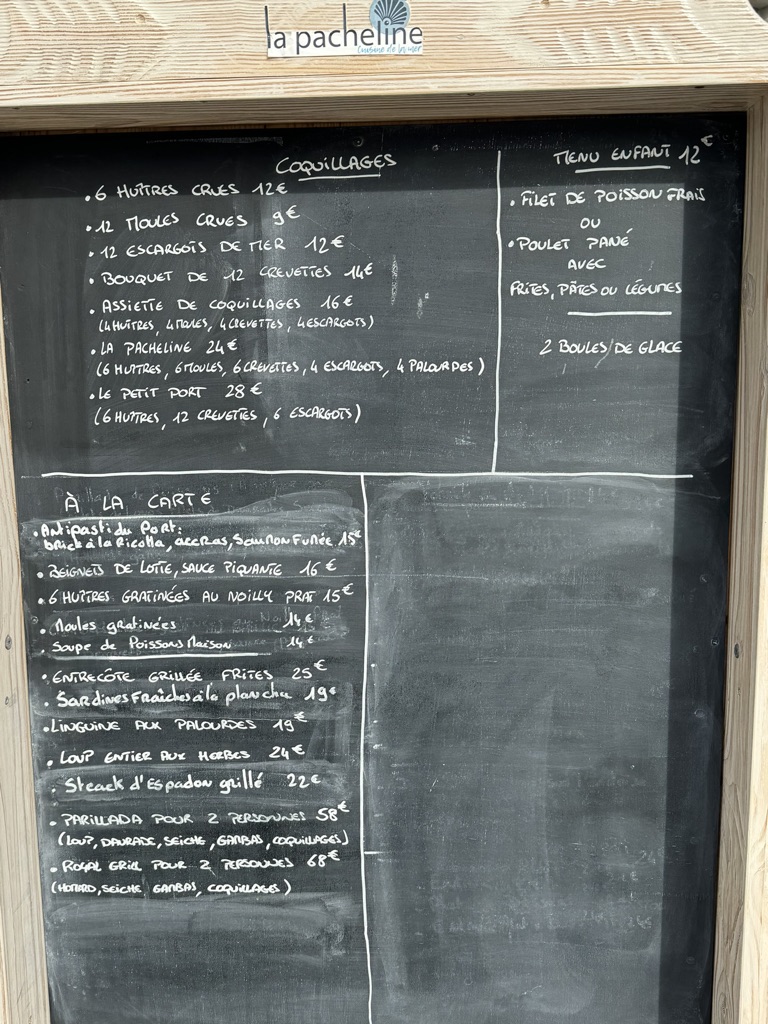 la pacheline
Cuisine de la mer
COQUILLAGES
• 6 HUÎTRES CRUES 12€
• 12 MOULES CRUES 9€
• 12 ESCARGOTS DE MER 12€
• BOUQUET DE 12 CREVETTES 14€
• ASSIETTE DE COQUILLAGES 16€
(4 HUÎTRES, 4 MOULES, 4 CREVETTES, 4 ESCARGOTS)
• LA PACHELINE 24€
(6 HUÎTRES, 6 MOULES, 6 CREVETTES, 4 ESCARGOTS, 4 PALOURDES)
• LE PETIT PORT 28€
(6 HUÎTRES, 12 CREVETTES, 6 ESCARGOTS)
MENU ENFANT 12€
• FILET DE POISSON FRAIS
OU
• POULET PANÉ
AVEC
FRITES, PÂTES OU LÉGUMES
2 BOULES DE GLACE
À LA CARTE
• Antipasti du Port:
brick à la Ricotta, accras, Saumon Fumée 15€
• BEIGNETS DE LOTTE, SAUCE PIQUANTE 16€
• 6 HUÎTRES GRATINÉES AU NOILLY PRAT 15€
• Moules gratinées 14€
• Soupe de Poissons Maison 14€
• ENTRECÔTE GRILLÉE FRITES 25€
• Sardines Fraîches à la plancha 19€
• LINGUINE AUX PALOURDES 19€
• LOUP ENTIER AUX HERBES 24€
• Steack d'Espadon grillé 22€
• PARILLADA POUR 2 PERSONNES 58€
(LOUP, DAURADE, SEICHE, GAMBAS, COQUILLAGES)
• ROYAL GRILL POUR 2 PERSONNES 68€
(HOMARD, SEICHE GAMBAS, COQUILLAGES)